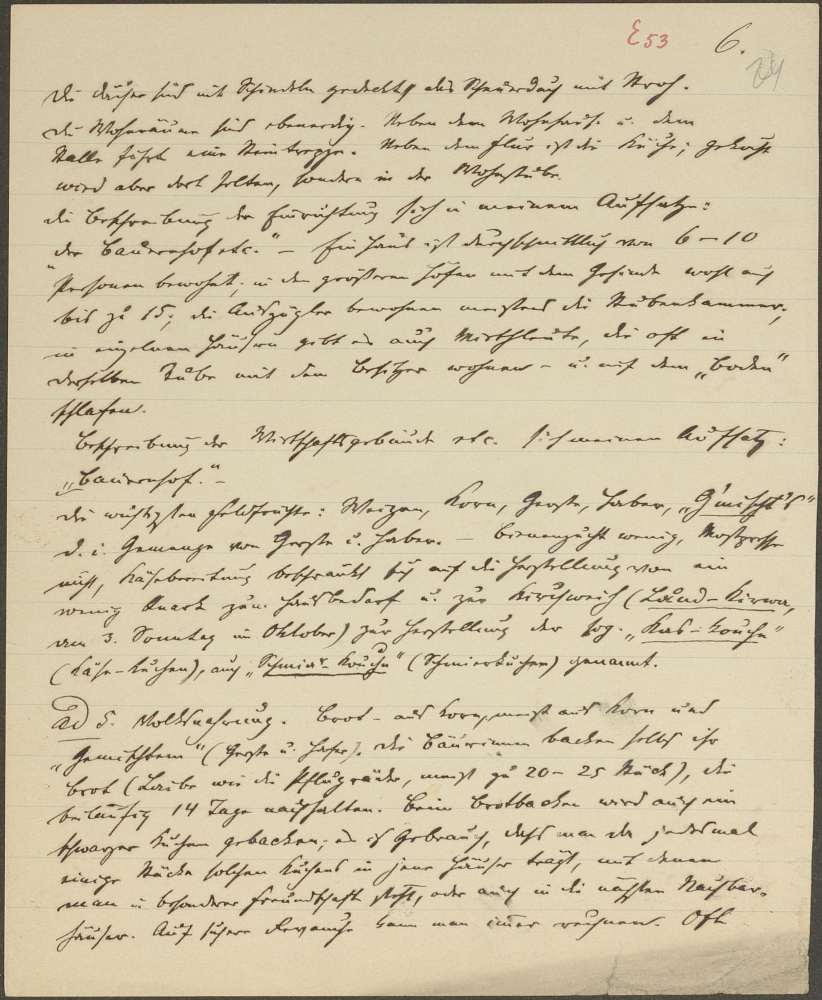 E 53 6.
24
Die Häuser sind mit Schindeln gedeckt, das Scheuerdach mit Stroh.
Die Wohnräume sind ebenerdig. Neben dem Wohnhause u. dem
Stalle führt eine Steintreppe. Neben dem Flur ist die Küche; gekocht
wird aber dort selten, sondern in der Wohnstube.
Die Beschreibung der Einrichtung sieh in meinem Aufsatze:
„der Bauernhof etc." – Ein Haus ist durchschnittlich von 6–10
Personen bewohnt; in den größeren Höfen mit dem Gesinde wohl auch
bis zu 15; die Auszügler bewohnen meistens die Stubenkammer;
in einzelnen Häusern gibt es auch Miethleute, die oft in
derselben Stube mit dem Besitzer wohnen – u. auf dem „Boden"
schlafen.
Beschreibung der Wirtschaftsgebäude etc. sieh meinen Aufsatz:
„Bauernhof." –
Die wichtigsten Feldfrüchte: Weizen, Korn, Gerste, Haber, „G'mischt's"
d. i. Gemenge von Gerste u. Haber. – Bienenzucht wenig, Mostpresse
nicht, Käsebereitung beschränkt sich auf die Herstellung von ein
wenig Quark zum Hausbedarf u. zur Kirchweih (Laud-Kirwa,
am 3. Sonntag im Oktober) zur Herstellung der sog. „Kas-Kouchn"
(Käse-Kuchen), auch „Schmia-Kouchn" (Schmierkuchen) genannt.
ad 5. Volksnahrung. Brot – aus Korn, meist aus Korn und
„Gemischtem" (Gerste u. Hafer). Die Bäuerinnen backen selbst ihr
Brot (Laibe wie die Pflugräder, meist zu 20–25 Stück), die
beiläufig 14 Tage nachhalten. Beim Brotbacken wird auch ein
schwarzer Kuchen gebacken; es ist Gebrauch, dass man da jedesmal
einige Stücke solchen Kuchens in jene Häuser trägt, mit denen
man in besonderer Freundschaft steht, oder auch in die nächsten Nachbar-
häuser. Auf sichere Revanche kann man immer rechnen. Oft